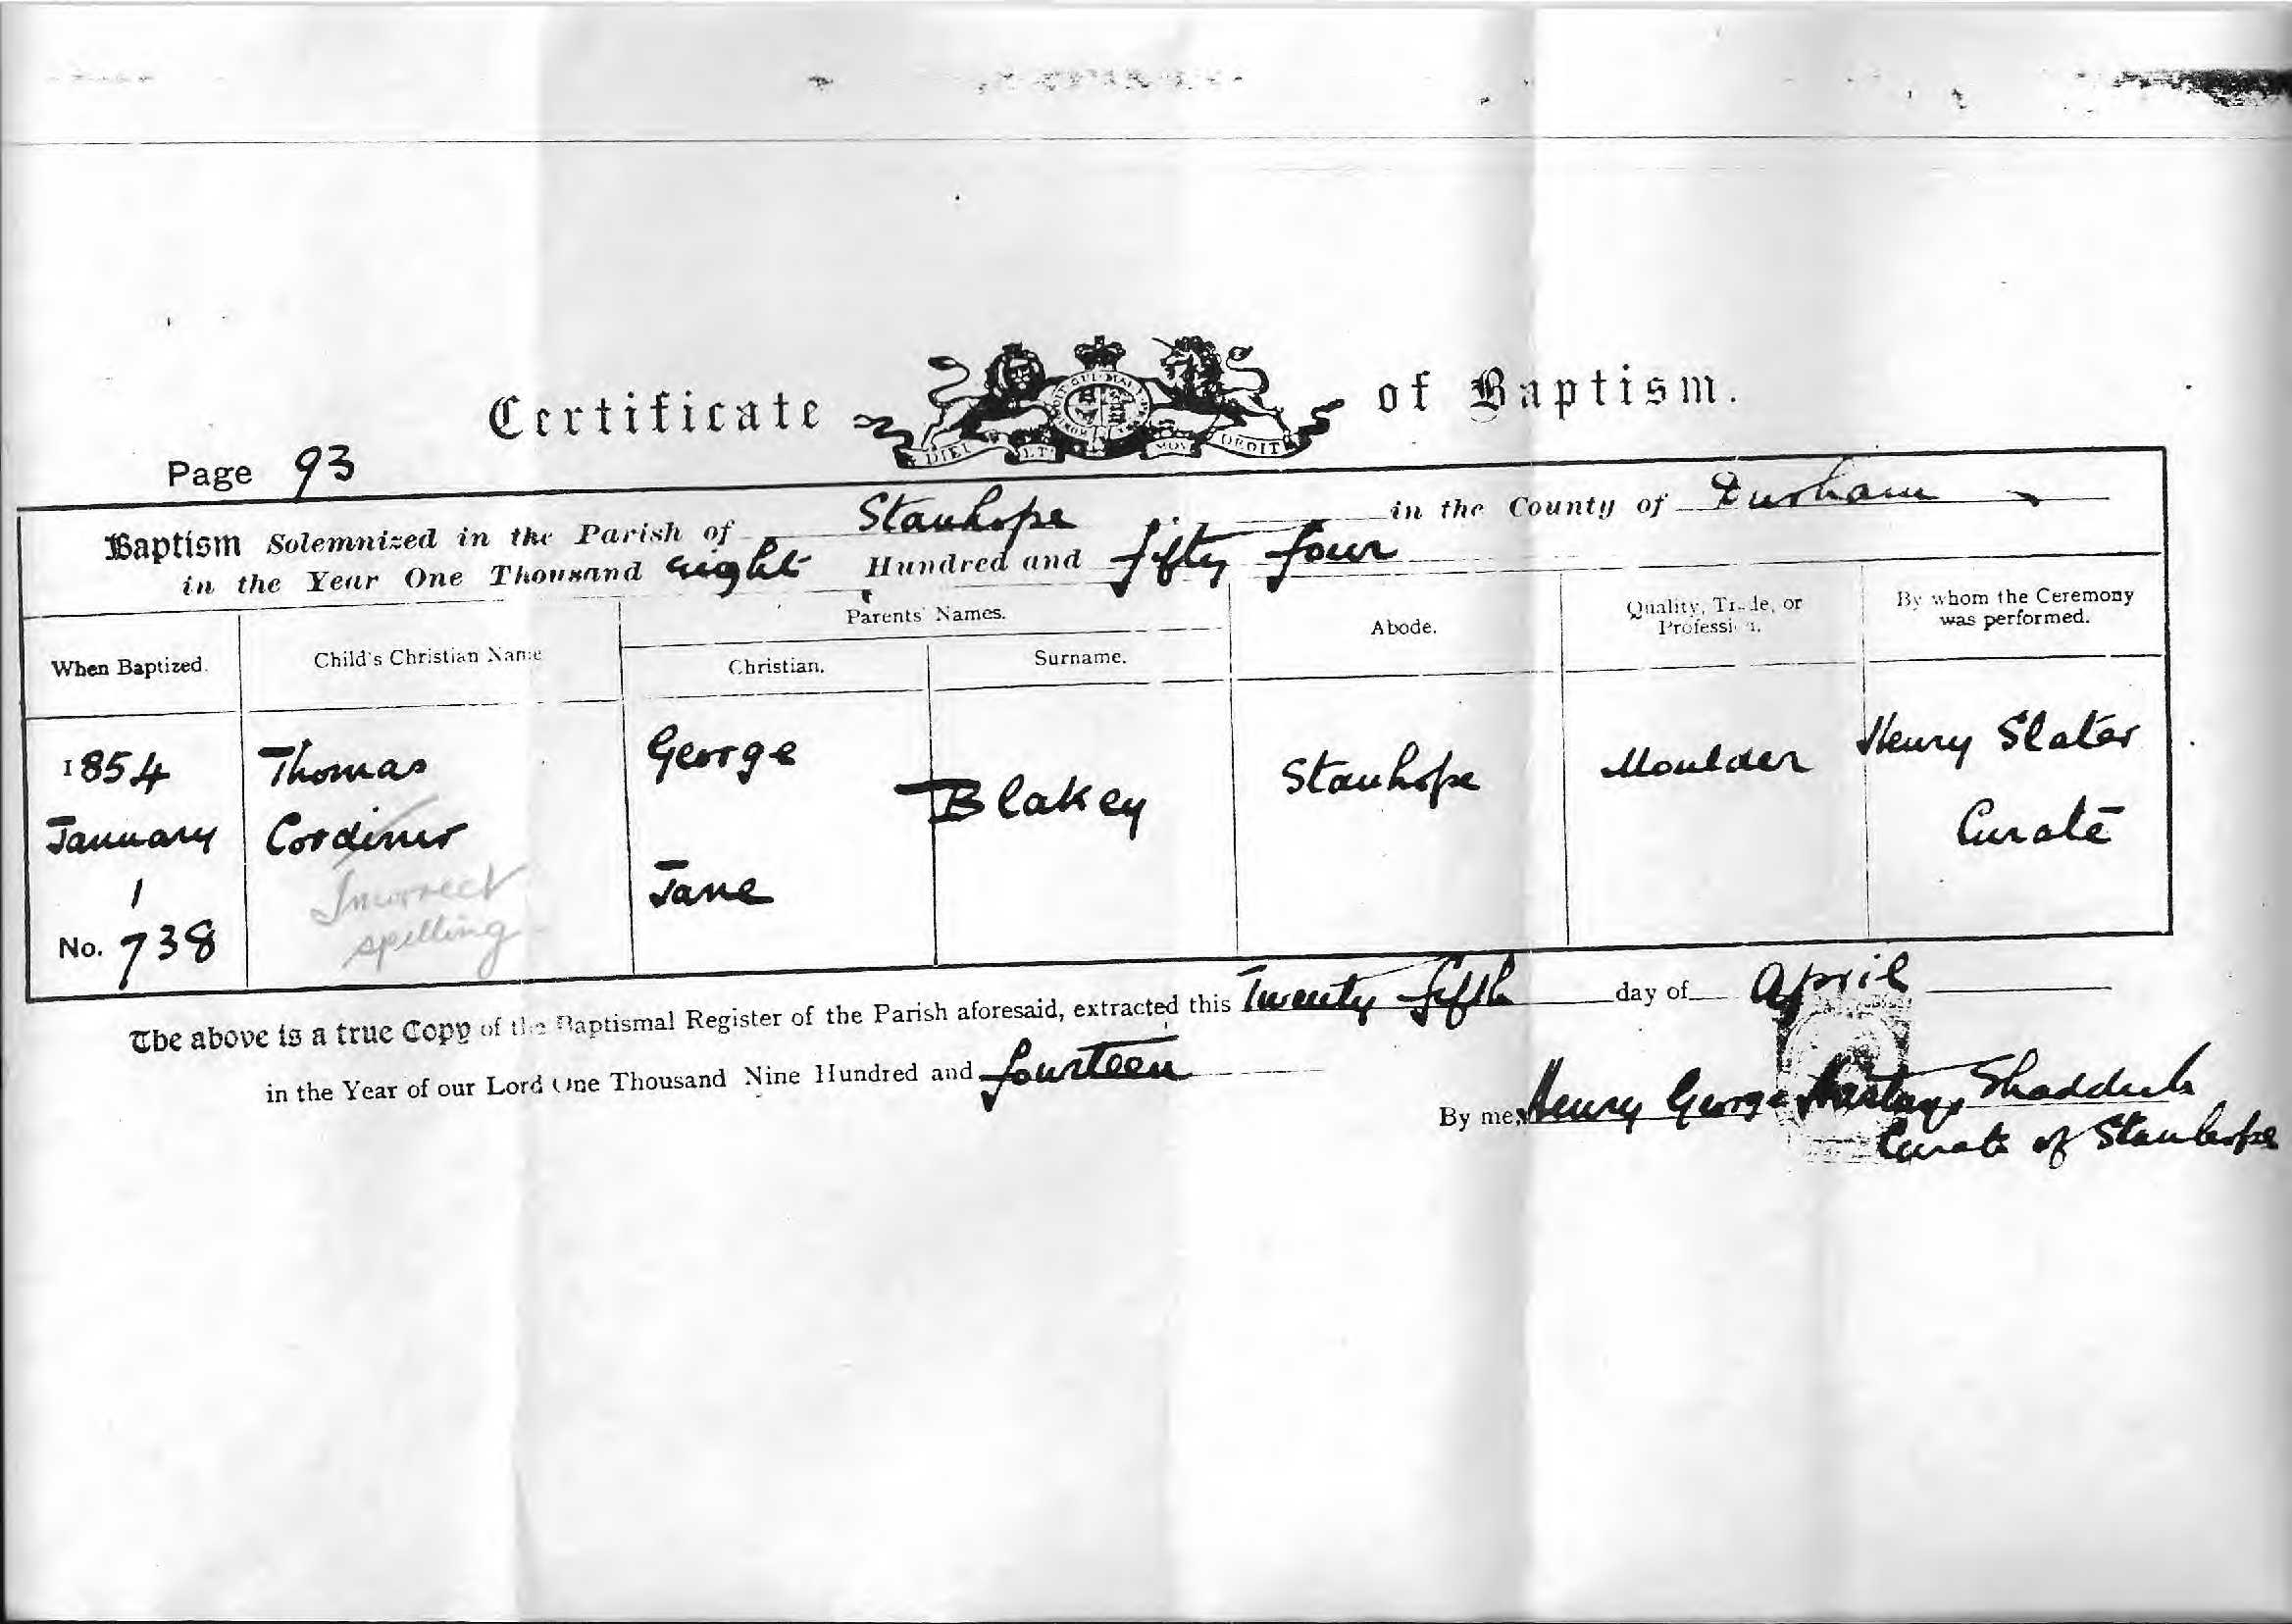 Certificate of Baptism.
DIEU ET MON DROIT
Page 93
Baptism Solemnized in the Parish of Stanhope in the County of Durham
in the Year One Thousand eight Hundred and fifty four
When Baptized.
Child's Christian Name
Parents' Names.
Christian.
Surname.
Abode.
Quality, Trade, or
Profession.
By whom the Ceremony
was performed.
1854
January
1
No. 738
Thomas
Cordiner
Incorrect
spelling
George
Jane
Blakey
Stanhope
Moulder
Henry Slater
Curate
The above is a true Copy of the Baptismal Register of the Parish aforesaid, extracted this Twenty fifth day of April
in the Year of our Lord One Thousand Nine Hundred and fourteen
By me, Henry George Shadduck
Curate of Stanhope